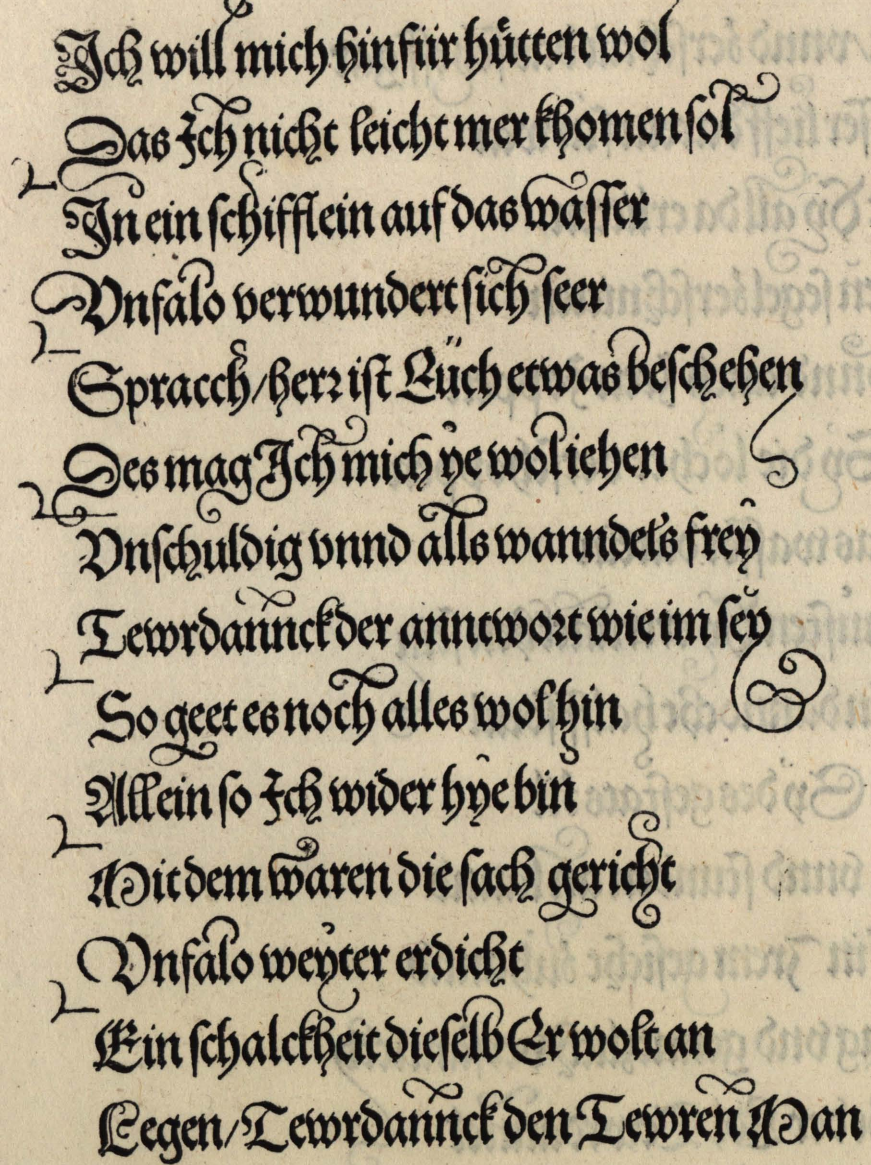 Ich will mich hinfür hütten wol
Das Ich nicht leicht mer khomen sol
In ein schifflein auf das wasser
Vnfalo verwundert sich seer
Spracch/herr ist Eüch etwas beschehen
Des mag Ich mich ye wol iehen
Vnschuldig vnnd alls wanndels frey
Tewrdannck der anntwort wie im sey
So geet es noch alles wol hin
Allein so Ich wider hye bin
Mit dem waren die sach gericht
Vnfalo weyter erdicht
Ein schalckheit dieselb Er wolt an
Legen/Tewrdannck den Tewren Man